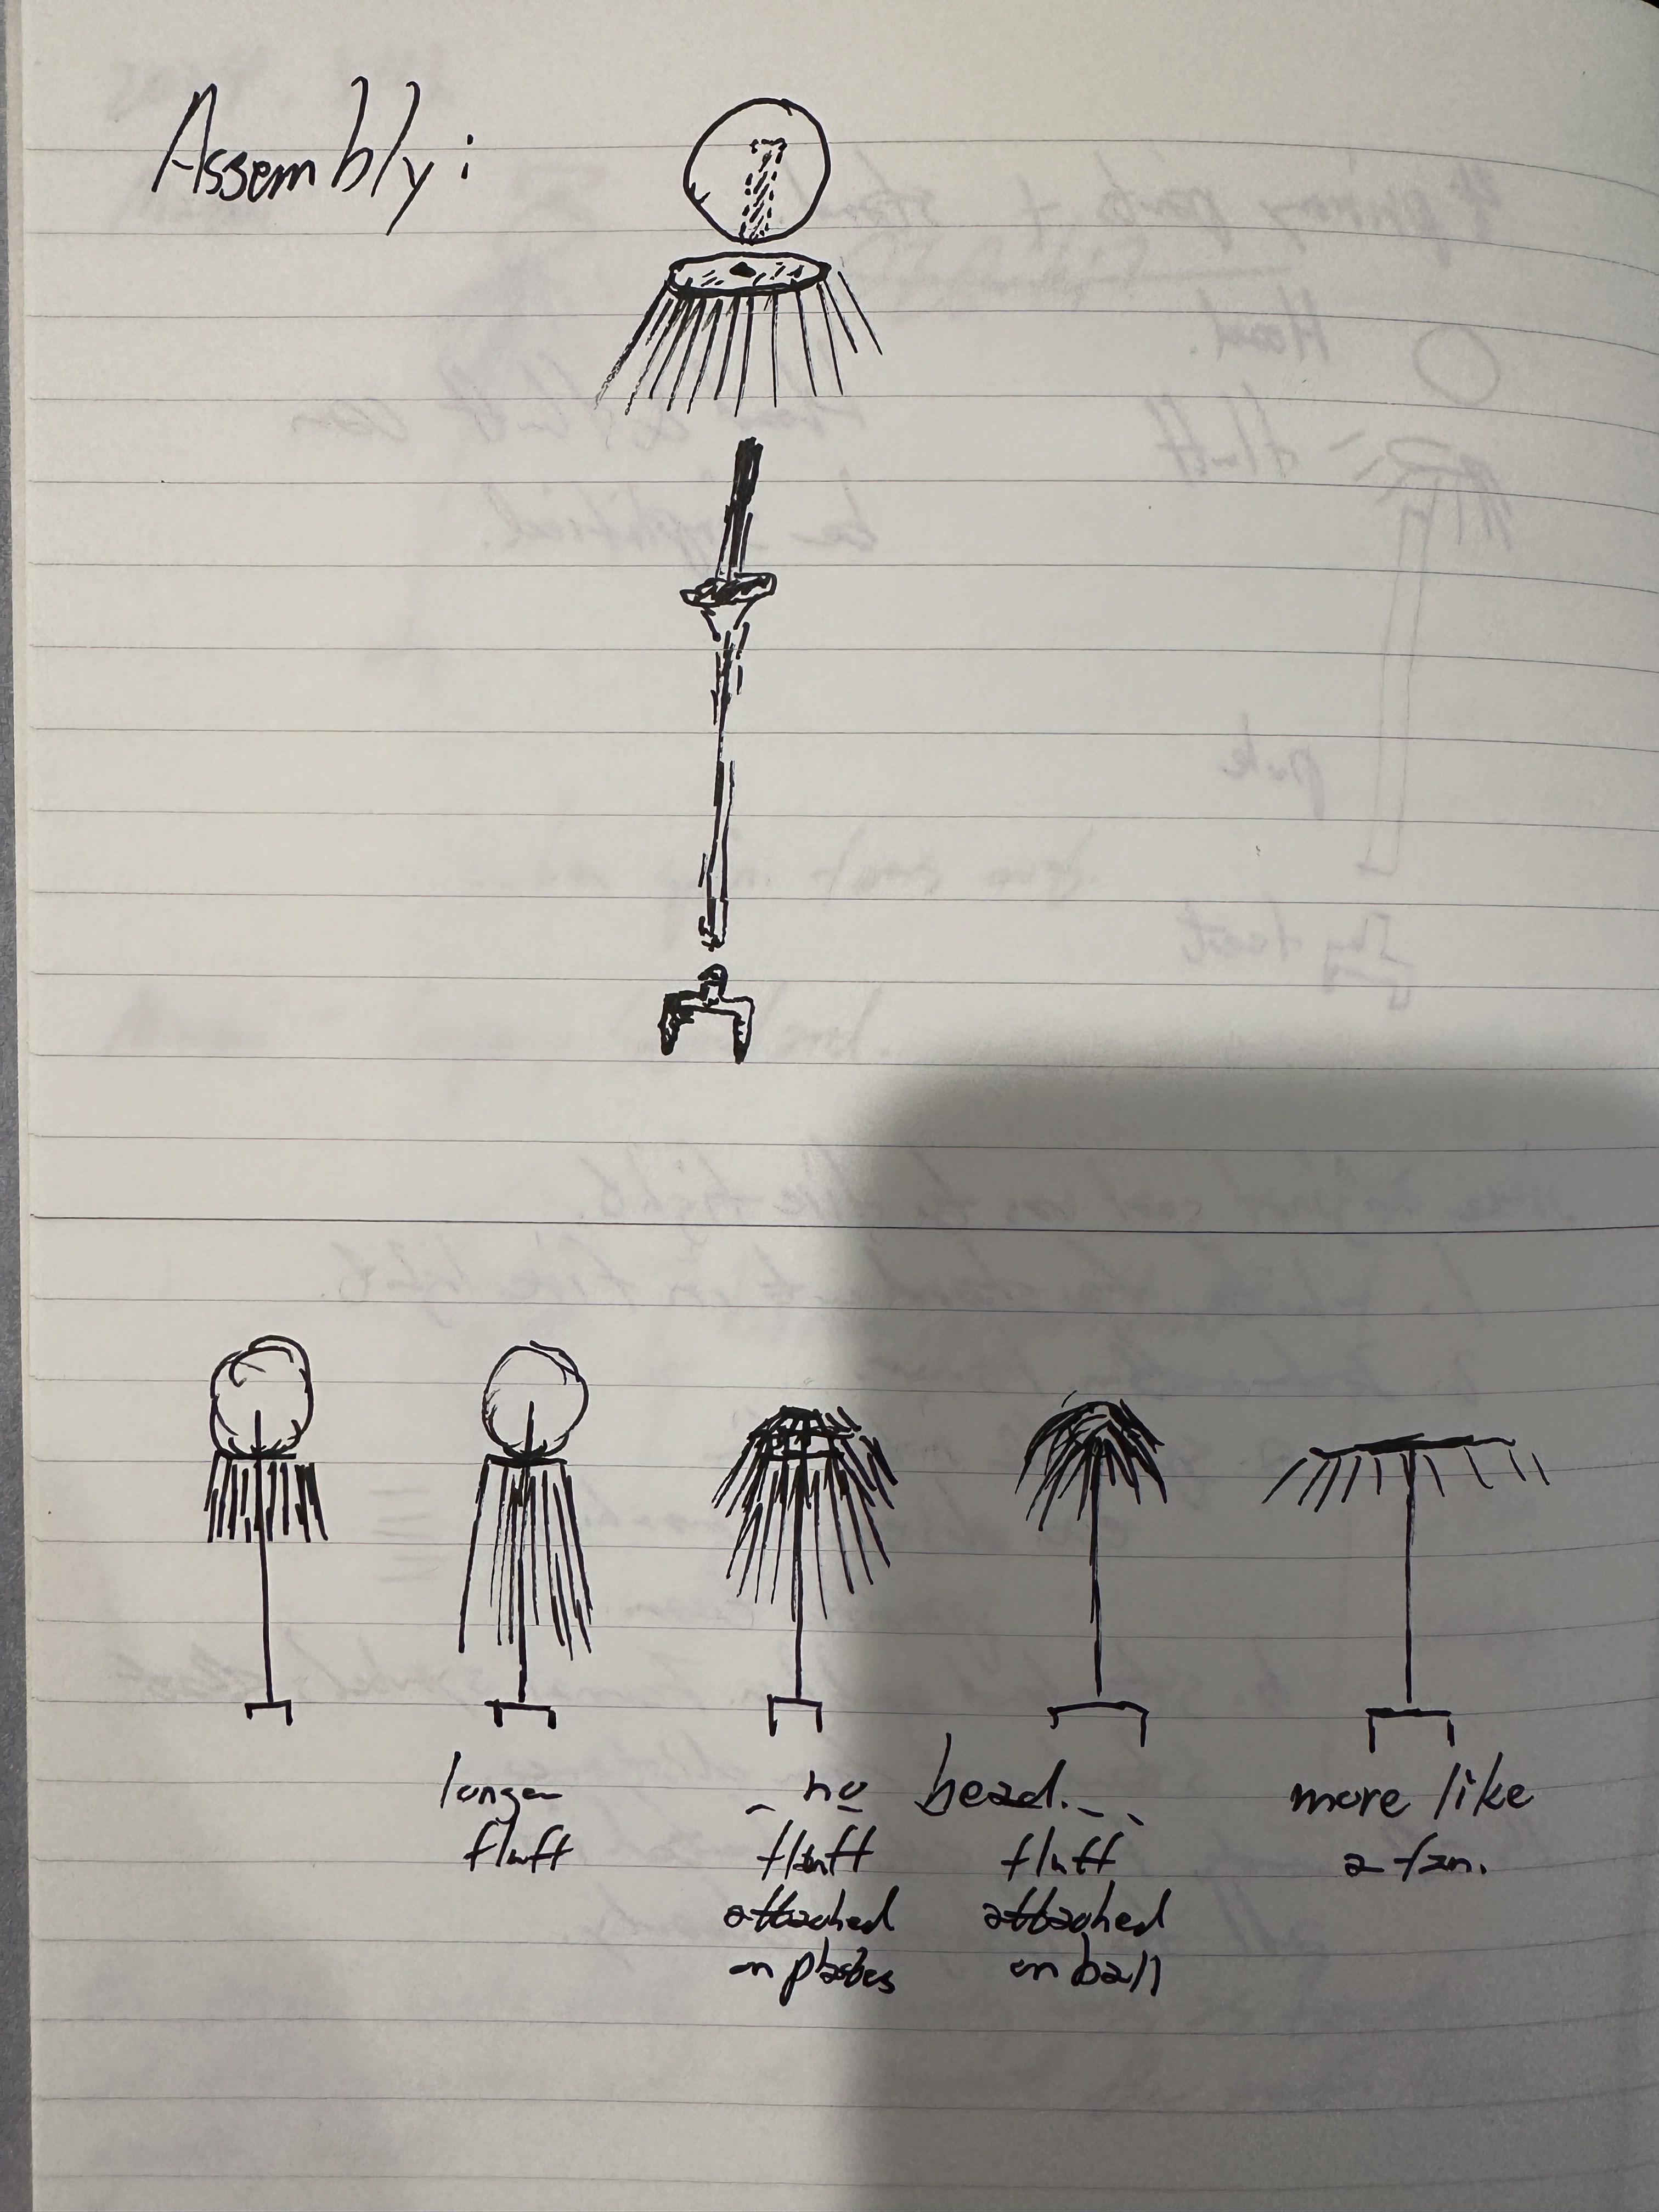 Assembly:
longer
fluff
- no head. - -
fluff
attached
on plates
fluff
attached
on ball
more like
a fan.